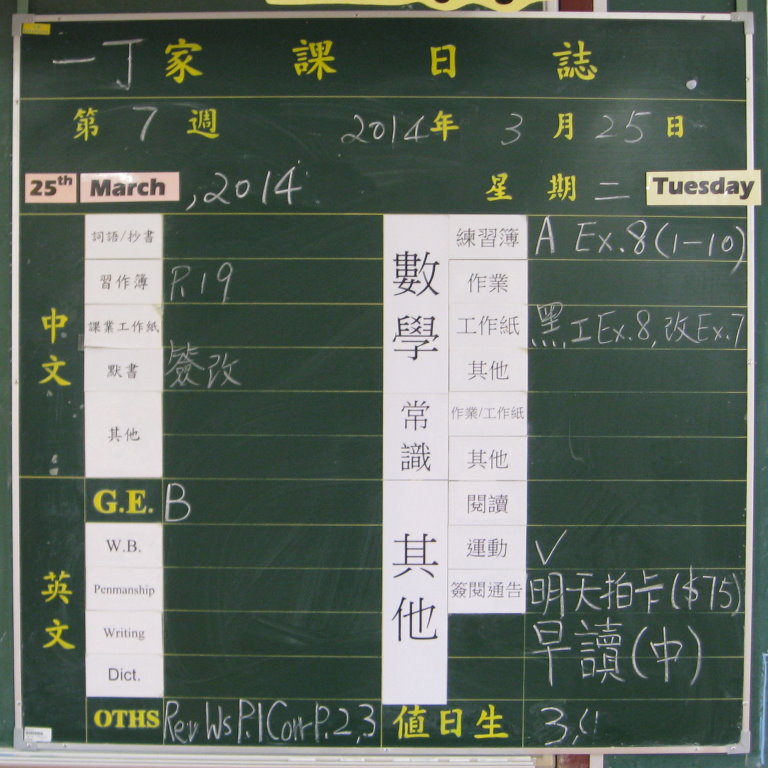 一丁家課日誌
第7週 2014年3月25日
25th March, 2014 星期二 Tuesday
中文
詞語/抄書
習作簿 P.19
課業工作紙
默書 簽改
其他
英文
G.E. B
W.B.
Penmanship
Writing
Dict.
OTHS Rev Ws P.1 Corr P.2,3
數學
練習簿 A Ex.8(1-10)
作業
工作紙 黑工Ex.8,改Ex.7
其他
常識
作業/工作紙
其他
其他
閱讀
運動 ✓
簽閱通告 明天拍卡($75)
早讀(中)
值日生 3,4